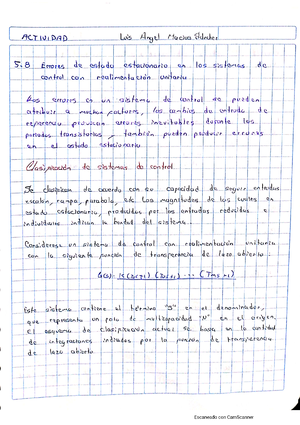 ACTIVIDAD Luis Angel
5.8 Errores de estado estacionario en los sistemas de
control con realimentación unitaria
Los errores en un sistema de control se pueden
atribuir a muchos factores, los cambios de entrada de
referencia provocan errores inevitables durante los
periodos transitorios, también pueden producir errores
en el estado estacionario.
Clasificación de sistemas de control.
Se clasifican de acuerdo con su capacidad de seguir entradas
escalón, rampa, parabola, etc. Las magnitudes de los errores en
estado estacionario, producidos por las entradas
individuales indican la bondad del sistema.
Considerese un sistema de control con realimentación unitaria
con la siguiente función de transferencia de lazo abierto:
G(s)=
Este sistema contiene el término "S" en el denominador,
que representa un polo de multiplicidad "N" en el origen,
el esquema de clasificación actual se basa en la cantidad
de integraciones indicadas por la función de transferencia
de lazo abierto
Escaneado con CamScanner